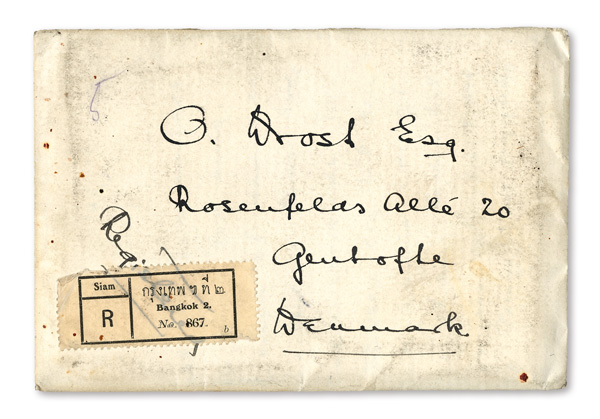 5
O. Drost Esq.
Rosenfelds Allé 20
Gentofte
Denmark.
Siam
R
กรุงเทพฯ ที่ ๒
Bangkok 2.
No. 867.
b